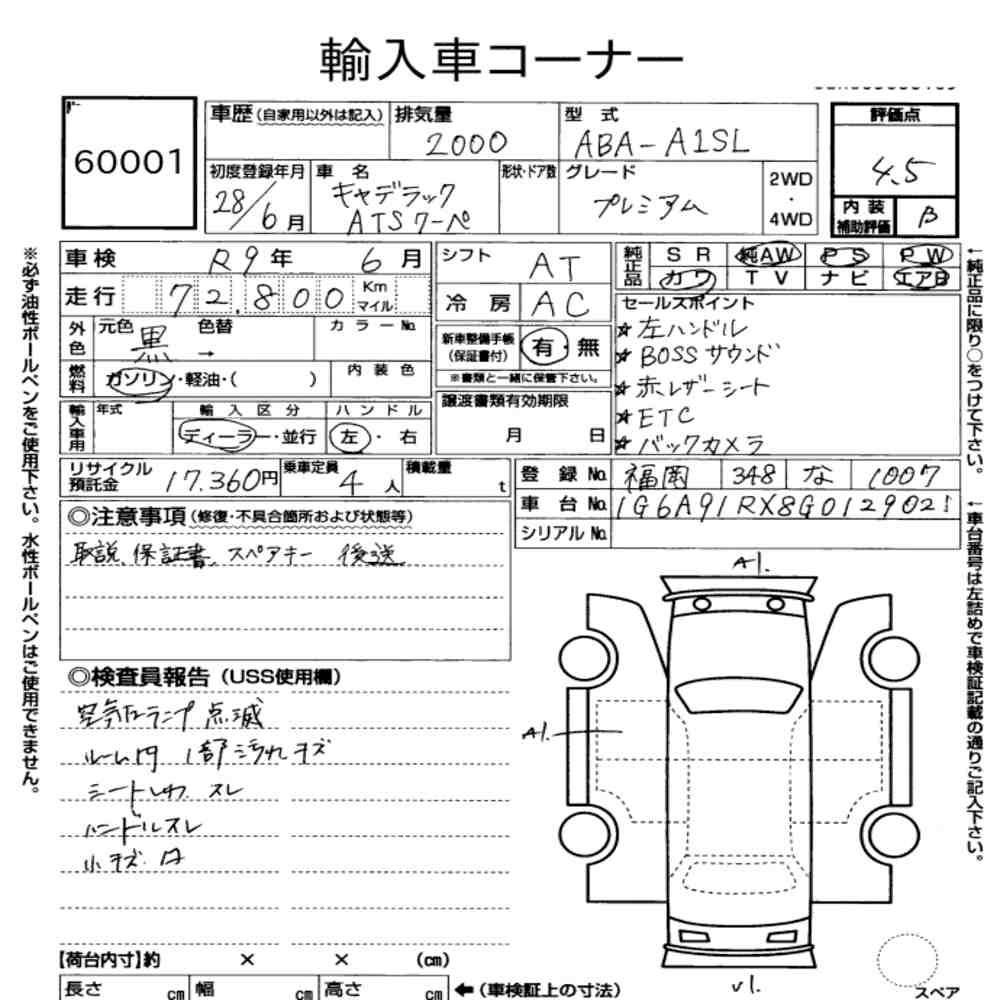 輸入車コーナー
60001
車歴(自家用以外は記入)
排気量
2000
型式
ABA-A1SL
評価点
4.5
初度登録年月
28/6月
車名
キャデラック
ATSクーペ
形状・ドア数
グレード
プレミアム
2WD
・
4WD
内装
補助評価
B
車検 R9年 6月
走行 72,800 Km マイル
シフト AT
冷房 AC
純正品
SR 純AW PS PW
カワ TV ナビ エアB
外色
元色 黒 色替 →
カラーNo.
燃料
ガソリン・軽油・( )
内装色
新車整備手帳
(保証書付)
有・無
※書類と一緒に保管下さい。
セールスポイント
☆左ハンドル
☆BOSSサウンド
☆赤レザーシート
☆ETC
☆バックカメラ
輸入車用
年式
輸入区分
ディーラー・並行
ハンドル
左・右
譲渡書類有効期限
月 日
リサイクル
預託金
17.360円
乗車定員
4人
積載量
t
登録No. 福岡 348 な 1007
車台No. 1G6A91RX8G0129021
シリアルNo.
◎注意事項(修復・不具合箇所および状態等)
取説、保証書、スペアキー 後送
◎検査員報告(USS使用欄)
空気圧ランプ点滅
ルーム内 1部汚れキズ
シートしわ、スレ
ハンドルスレ
小キズ、凹
A1.
A1.
V1.
スペア
【荷台内寸】約 × × (cm)
長さ cm 幅 cm 高さ cm ←(車検証上の寸法)
※必ず油性ボールペンをご使用下さい。水性ボールペンはご使用できません。
←純正品に限り○をつけて下さい。
←車台番号は左詰めで車検証記載の通りご記入下さい。